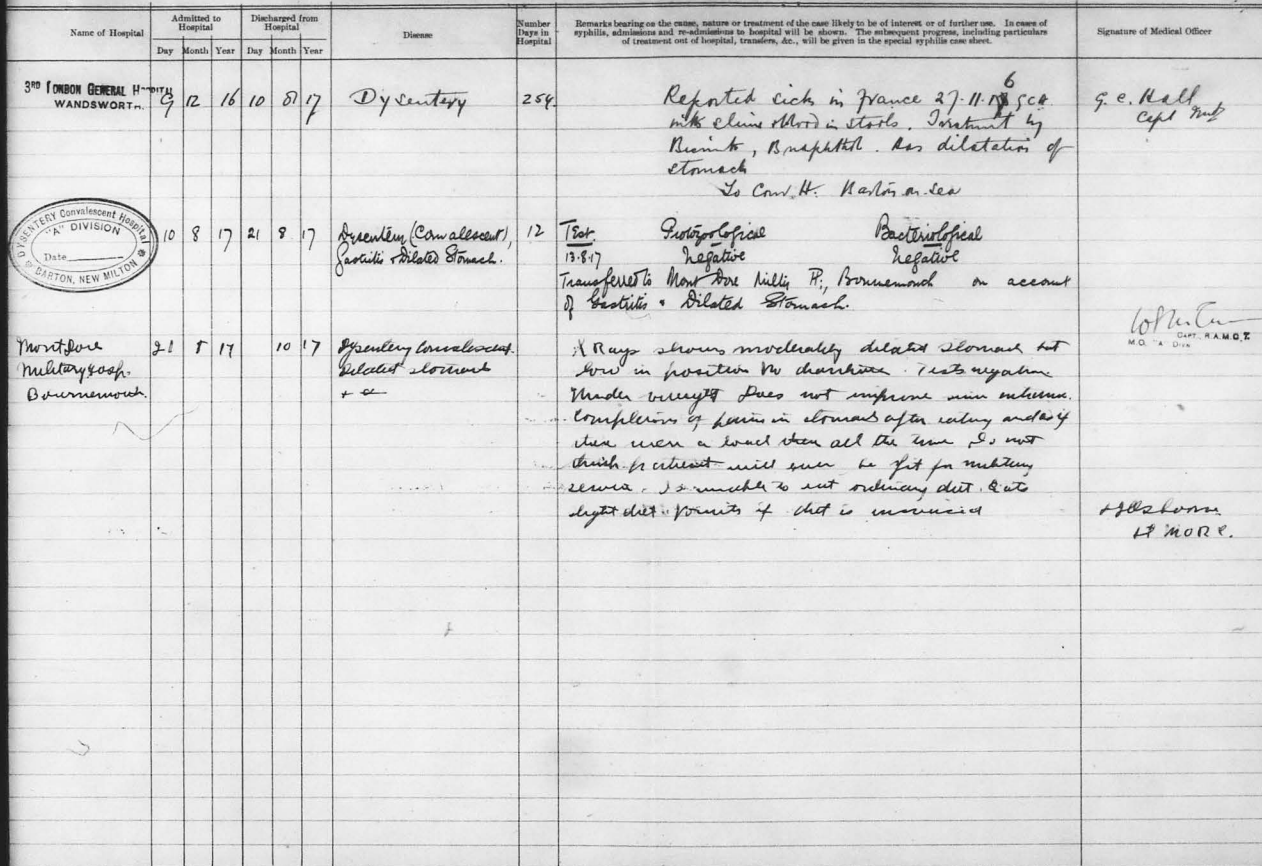 Name of Hospital
Admitted to Hospital
Discharged from Hospital
Disease
Number Days in Hospital
Remarks bearing on the cause, nature or treatment of the case likely to be of interest or of further use. In cases of
syphilis, admissions and re-admissions to hospital will be shown. The subsequent progress, including particulars
of treatment out of hospital, transfers, &c., will be given in the special syphilis case sheet.
Signature of Medical Officer
Day Month Year Day Month Year
3RD LONDON GENERAL HOSPITAL
WANDSWORTH.
9 12 16 10 8 17
Dysentery
254
Reported sick in France 27.11.16
with slime & blood in stools. Treatment by
Bismuth, B naphthol. Has dilatation of
stomach
To Conv. H. Barton on Sea
G. C. Hall
Capt
DYSENTERY Convalescent Hospital
"A" DIVISION
Date
BARTON, NEW MILTON
10 8 17 21 8 17
Dysentery (Convalescent),
Gastritis & Dilated Stomach.
12
Test. Protozoological Bacteriological
13.8.17 Negative Negative
Transferred to Mont Dore Military H., Bournemouth on account
of Gastritis & Dilated Stomach.
CAPT. R.A.M.C.T.
M.O. "A" Divn
Mont Dore
Military Hosp.
Bournemouth.
21 8 17 10 17
Dysentery Convalescent.
Dilated stomach
X Rays shows moderately dilated stomach but
low in position No diarrhoea. Tests negative
Under weight Does not improve
Complains of pains in stomach after eating and as if
there were a load there all the time I do not
think patient will ever be fit for military
service. Is unable to eat ordinary diet.
light diet. Vomits if diet is increased
Osborne
Lt